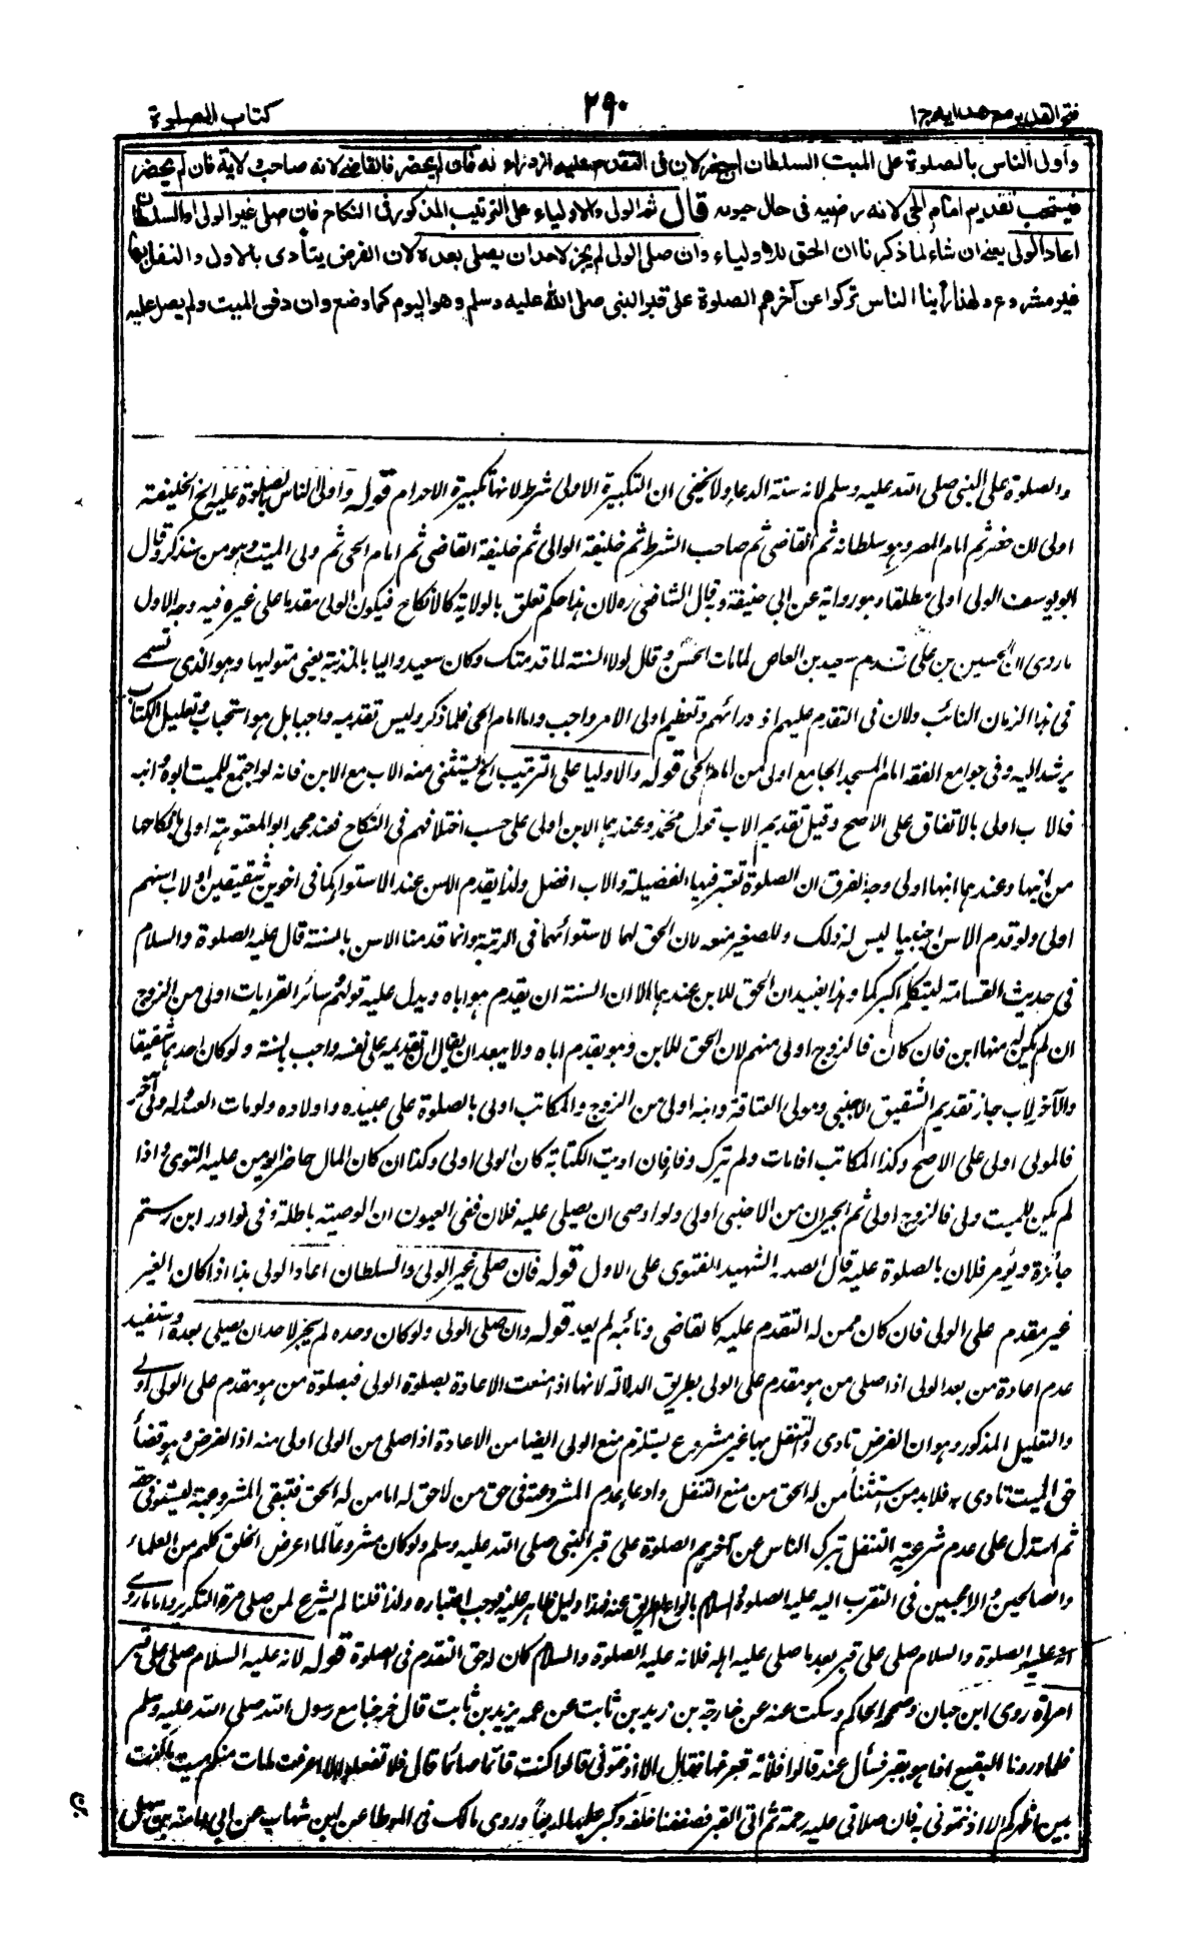 فتح القدير مع هدايه ج ١
٢٩٠
كتاب الصلوة
وأولى الناس بالصلوة على الميت السلطان ان حضر لان فى التقدم عليه ازدراء له فان لم يحضر فالقاضى لانه صاحب ولاية فان لم يحضر
فيستحب تقديم امام الحى لانه رضيه فى حال حيوته قال ثم الولى والاولياء على الترتيب المذكور فى النكاح فان صلى غير الولى او السلطان
اعاد الولى يعنى ان شاء لما ذكرنا ان الحق للاولياء وان صلى الولى لم يجز لاحد ان يصلى بعده لان الفرض يتأدى بالاول والتنفل بها
غير مشروع ولهذا رأينا الناس تركوا عن آخرهم الصلوة على قبر النبى صلى الله عليه وسلم وهو اليوم كما وضع وان دفن الميت ولم يصل عليه
والصلوة على النبى صلى الله عليه وسلم لانه سنة الدعاء ولا يخفى ان التكبيرة الاولى شرط لانها تكبيرة الاحرام قوله واولى الناس بالصلوة عليه الخ الخليفة
اولى ان حضر ثم امام المصر وهو سلطانه ثم القاضى ثم صاحب الشرط ثم خليفة الوالى ثم خليفة القاضى ثم امام الحى ثم ولى الميت وهو من سنذكر وقال
ابو يوسف الولى اولى مطلقا وهو رواية عن ابى حنيفة وقال الشافعى ره لان هذا حكم تعلق بالولاية كالانكاح فيكون الولى مقدما على غيره فيه وجه الاول
ما روى ان الحسين بن على قدم سعيد بن العاص لما مات الحسن وقال لولا السنة لما قدمتك وكان سعيد واليا بالمدينة يعنى متوليها وهو الذى تسمى
فى هذا الزمان النائب ولان فى التقدم عليهم ازدرائهم وتعظيم اولى الامر واجب واما امام الحى فلما ذكر وليس تقديمه واجبا بل هو استحباب وتعليل الكتاب
يرشد اليه وفى جوامع الفقه امام المسجد الجامع اولى من امام الحى قوله والاوليا على الترتيب الخ يستثنى منه الاب مع الابن فانه لو اجتمع للميت ابوه وابنه
فالاب اولى بالاتفاق على الاصح وقيل تقديم الاب قول محمد وعندهما الابن اولى على حسب اختلافهم فى النكاح فعند محمد ابو المعتوهة اولى بانكاحها
من ابنها وعندهما ابنها اولى وجه الفرق ان الصلوة تعتبر فيها الفضيلة والاب افضل ولذا يقدم الاسن عند الاستواء كما فى اخوين شقيقين او لاب اسنهم
اولى ولو قدم الاسن اجنبيا ليس له ذلك وللصغير منعه لان الحق لهما لاستوائهما فى الرتبة وانما قدمنا الاسن بالسنة قال عليه الصلوة والسلام
فى حديث القسامة ليتكلم اكبركما وهذا يفيد ان الحق للابن عندهما الا ان السنة ان يقدم هو اباه ويدل عليه قولهم سائر القرابات اولى من الزوج
ان لم يكن له منها ابن فان كان فالزوج اولى منهم لان الحق للابن وهو يقدم اباه ولا يبعد ان يقال ان تقديمه على نفسه واجب بالسنة ولو كان احدهما شقيقا
والآخر لاب جاز تقديم الشقيق الاجنبى ومولى العتاقة وابنه اولى من الزوج والمكاتب اولى بالصلوة على عبيده واولاده ولو مات العبد وله ولى آخر
فالمولى اولى على الاصح وكذا المكاتب اذا مات ولم يترك وفاء فان اديت الكتابة كان الولى اولى وكذا ان كان المال حاضرا يومن عليه التوى واذا
لم يكن للميت ولى فالزوج اولى ثم الجيران من الاجنبى اولى ولو اوصى ان يصلى عليه فلان ففى العيون ان الوصية باطلة وفى نوادر ابن رستم
جائزة ويؤمر فلان بالصلوة عليه قال الصدر الشهيد الفتوى على الاول قوله فان صلى غير الولى والسلطان اعاد الولى هذا اذا كان الغير
غير مقدم على الولى فان كان ممن له التقدم عليه كالقاضى ونائبه لم يعد قوله وان صلى الولى ولو كان وحده لم يجز لاحد ان يصلى بعده واستفيد
عدم اعادة من بعد الولى اذا صلى من هو مقدم على الولى بطريق الدلالة لانها اذا منعت الاعادة بصلوة الولى فبصلوة من هو مقدم على الولى اولى
والتعليل المذكور وهو ان الفرض تادى والتنفل بها غير مشروع يستلزم منع الولى ايضا من الاعادة اذا صلى من الولى اولى منه اذ الفرض وهو قضاء
حق الميت تادى به فلا بد من استثناء من له الحق من منع التنفل وادعاء عدم المشروعية فى حق من لا حق له اما من له الحق فتبقى المشروعية ليستوفى حقه
ثم استدل على عدم شرعية التنفل بترك الناس عن آخرهم الصلوة على قبر النبى صلى الله عليه وسلم ولو كان مشروعا لما اعرض الخلق كلهم من العلماء
والصالحين والراغبين فى التقرب اليه عليه الصلوة والسلام بانواع الطرق عنه فهذا دليل ظاهر عليه فوجب اعتباره ولذا قلنا لم يشرع لمن صلى مرة التكرير واما ما روى
انه عليه الصلوة والسلام صلى على قبر بعد ما صلى عليه اهله فلانه عليه الصلوة والسلام كان له حق التقدم فى الصلوة قوله لانه عليه السلام صلى على قبر
امرأة روى ابن حبان وصححه الحاكم وسكت عنه عن خارجة بن زيد بن ثابت عن عمه يزيد بن ثابت قال خرجنا مع رسول الله صلى الله عليه وسلم
فلما وردنا البقيع اذا هو بقبر فسأل عنه قالوا فلانة فعرفها فقال الا اذنتمونى قالوا كنت قائما صائما قال فلا تفعلوا لا اعرفن ما مات منكم ميت ما كنت
بين اظهركم الا اذنتمونى به فان صلاتى عليه رحمة ثم اتى القبر فصففنا خلفه وكبر عليه اربعا وروى مالك فى الموطا عن ابن شهاب عن ابى امامة بن سهل